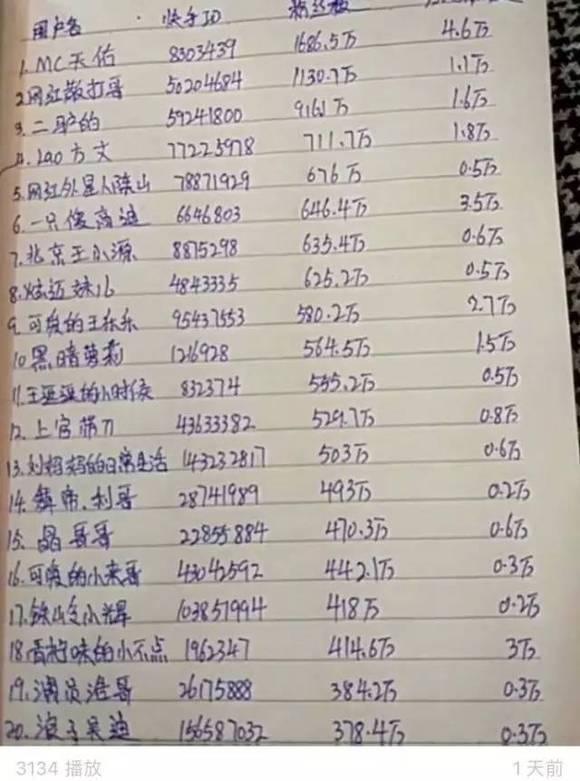 用户名 快手ID 粉丝数
1.MC天佑 8303439 1686.5万 4.6万
2.网红散打哥 50204684 1130.7万 1.1万
3.二驴的 59241800 916.1万 1.6万
4.lao方丈 77225978 711.7万 1.8万
5.网红外星人陈山 78871929 676万 0.5万
6.一只傻高迪 6646803 646.4万 3.5万
7.北京王小源 8875298 635.4万 0.6万
8.炫迈妹儿 4843335 625.2万 0.5万
9.可爱的王乐乐 95437553 580.2万 2.7万
10.黑暗萝莉 1216928 564.5万 1.5万
11.王亚亚的小时候 832374 555.2万 0.5万
12.上官带刀 43633382 529.7万 0.8万
13.刘妈妈的日常生活 143232817 503万 0.6万
14.舞帝.利哥 28741989 493万 0.2万
15.晶哥哥 22855884 470.3万 0.6万
16.可爱的小来哥 43042592 442.1万 0.3万
17.铁山公小辉 103857994 418万 0.2万
18.青柠味的小不点 1962347 414.6万 3万
19.演员浩哥 26175888 384.2万 0.3万
20.浪子吴迪 156587032 378.4万 0.3万
3134 播放 1天前